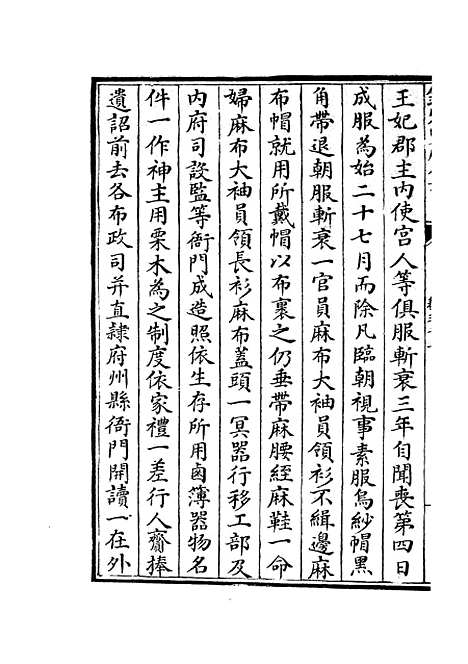 王妃郡主内使宫人等俱服斬衰三年自聞喪第四日
成服為始二十七月而除凡臨朝視事素服烏紗帽黑
角帶退朝服斬衰一官員麻布大袖員領衫不緝邊麻
布帽就用所戴帽以布裹之仍垂帶麻腰絰麻鞋一命
婦麻布大袖員領長衫麻布蓋頭一冥器行移工部及
内府司設監等衙門成造照依生存所用鹵簿器物名
件一作神主用栗木為之制度依家禮一差行人齎捧
遺詔前去各布政司并直隷府州縣衙門開讀一在外